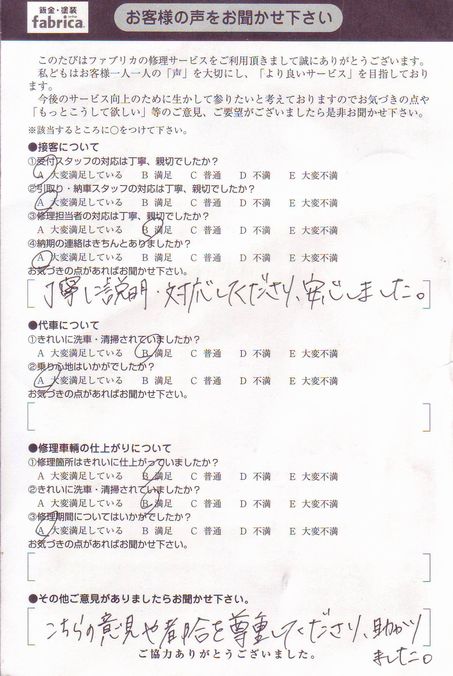 鈑金・塗装
fabrica.
お客様の声をお聞かせ下さい
このたびはファブリカの修理サービスをご利用頂きまして誠にありがとうございます。
私どもはお客様一人一人の「声」を大切にし、「より良いサービス」を目指しており
ます。
今後のサービス向上のために生かして参りたいと考えておりますのでお気づきの点や
「もっとこうして欲しい」等のご意見、ご要望がございましたら是非お聞かせ下さい。
※該当するところに○をつけて下さい。
●接客について
①受付スタッフの対応は丁寧、親切でしたか?
A 大変満足している B 満足 C 普通 D 不満 E 大変不満
②引取り・納車スタッフの対応は丁寧、親切でしたか?
A 大変満足している B 満足 C 普通 D 不満 E 大変不満
③修理担当者の対応は丁寧、親切でしたか?
A 大変満足している B 満足 C 普通 D 不満 E 大変不満
④納期の連絡はきちんとありましたか?
A 大変満足している B 満足 C 普通 D 不満 E 大変不満
お気づきの点があればお聞かせ下さい。
丁寧に説明・対応してくださり、安心しました。
●代車について
①きれいに洗車・清掃されていましたか?
A 大変満足している B 満足 C 普通 D 不満 E 大変不満
②乗り心地はいかがでしたか?
A 大変満足している B 満足 C 普通 D 不満 E 大変不満
お気づきの点があればお聞かせ下さい。
●修理車輌の仕上がりについて
①修理箇所はきれいに仕上がっていましたか?
A 大変満足している B 満足 C 普通 D 不満 E 大変不満
②きれいに洗車・清掃されていましたか?
A 大変満足している B 満足 C 普通 D 不満 E 大変不満
③修理期間についてはいかがでしたか?
A 大変満足している B 満足 C 普通 D 不満 E 大変不満
お気づきの点があればお聞かせ下さい。
●その他ご意見がありましたらお聞かせ下さい。
こちらの意見や都合を尊重してくださり、助かり
ました。
ご協力ありがとうございました。